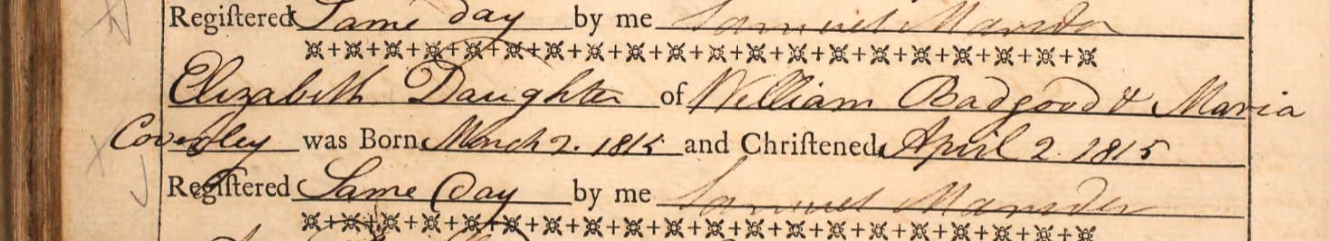 Regiſtered Same day by me Samuel Marsden
Elizabeth Daughter of William Badgood & Maria
Coverley was Born March 2. 1815 and Chriſtened April 2. 1815
Regiſtered Same Day by me Samuel Marsden